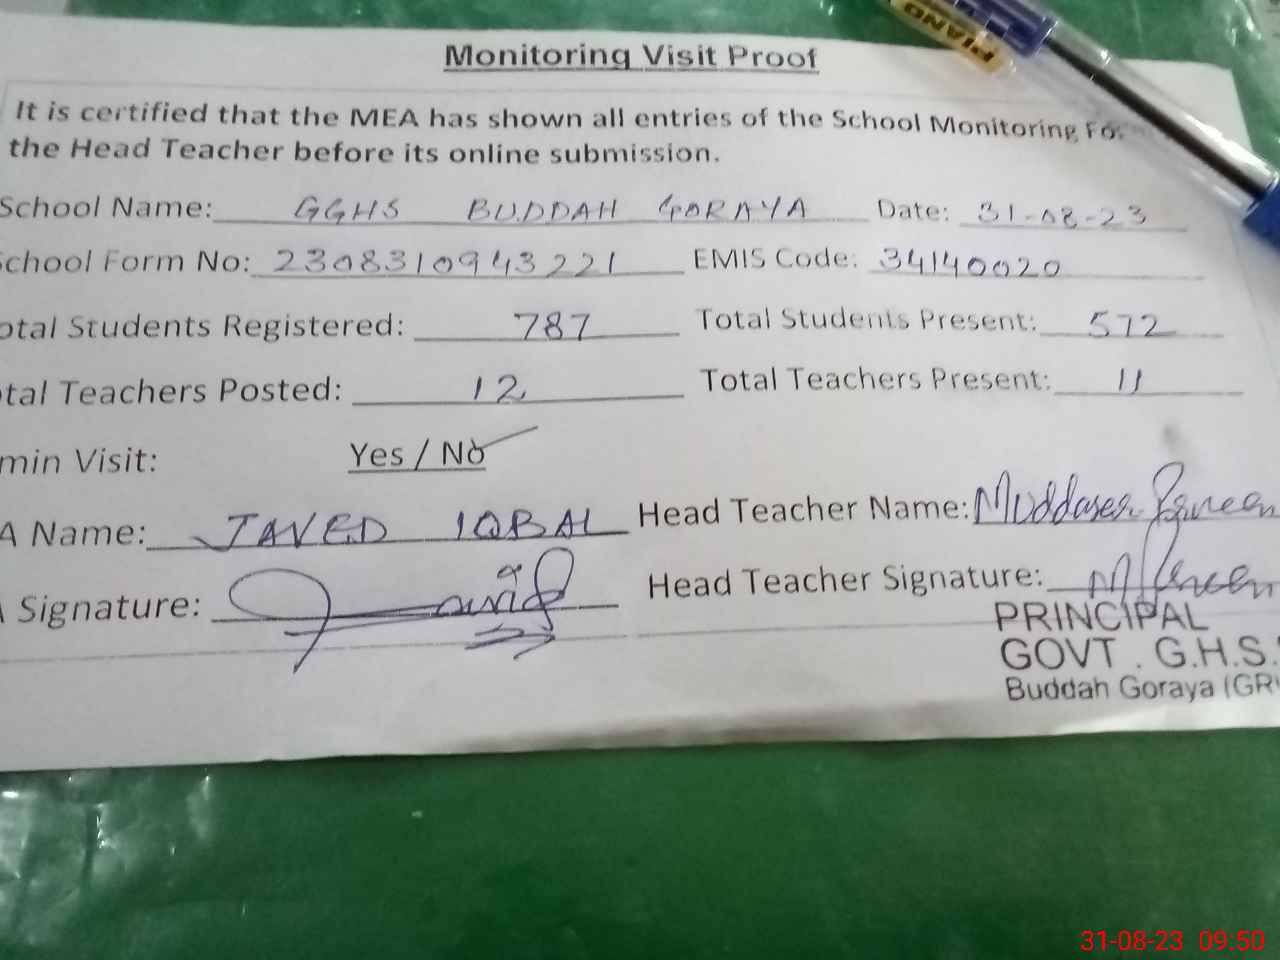 PIANO
Monitoring Visit Proof
It is certified that the MEA has shown all entries of the School Monitoring For
the Head Teacher before its online submission.
School Name: GGHS BUDDAH GORAYA Date: 31-08-23
School Form No: 2308310943221 EMIS Code: 34140020
otal Students Registered: 787 Total Students Present: 572
tal Teachers Posted: 12 Total Teachers Present: 11
min Visit: Yes / No
A Name: JAVED IQBAL Head Teacher Name: Muddaser Parveen
Signature: Javid Head Teacher Signature: M Parveen
PRINCIPAL
GOVT . G.H.S.
Buddah Goraya (GR
31-08-23 09:50